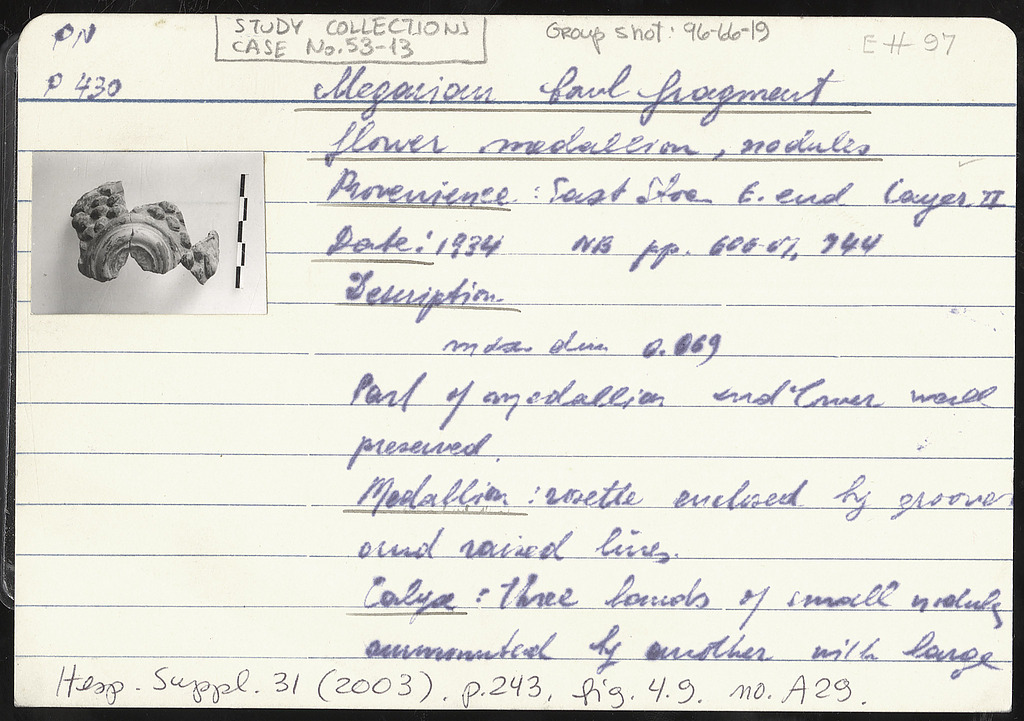 PN
STUDY COLLECTIONS
CASE No. 53-13
Group shot: 96-66-19
E H 97
P 430
Megarian bowl fragment
flower medallion, nodules
Provenience: East Stoa E. end Layer II
Date: 1934 NB pp. 606-07, 744
Description
max dim 0.069
Part of medallion and lower wall
preserved.
Medallion: rosette enclosed by grooves
and raised lines.
Calyx: three bands of small nodules
surmounted by another with large
Hesp. Suppl. 31 (2003). p.243, fig. 4.9. no. A29.